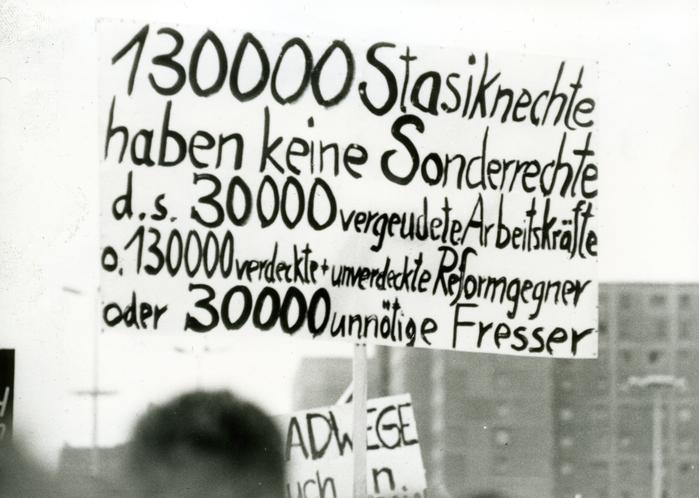 130000 Stasiknechte
haben keine Sonderrechte
d.s. 30000 vergeudete Arbeitskräfte
o. 130000 verdeckte + unverdeckte Reformgegner
oder 30000 unnötige Fresser
ADWEGE
uch n.